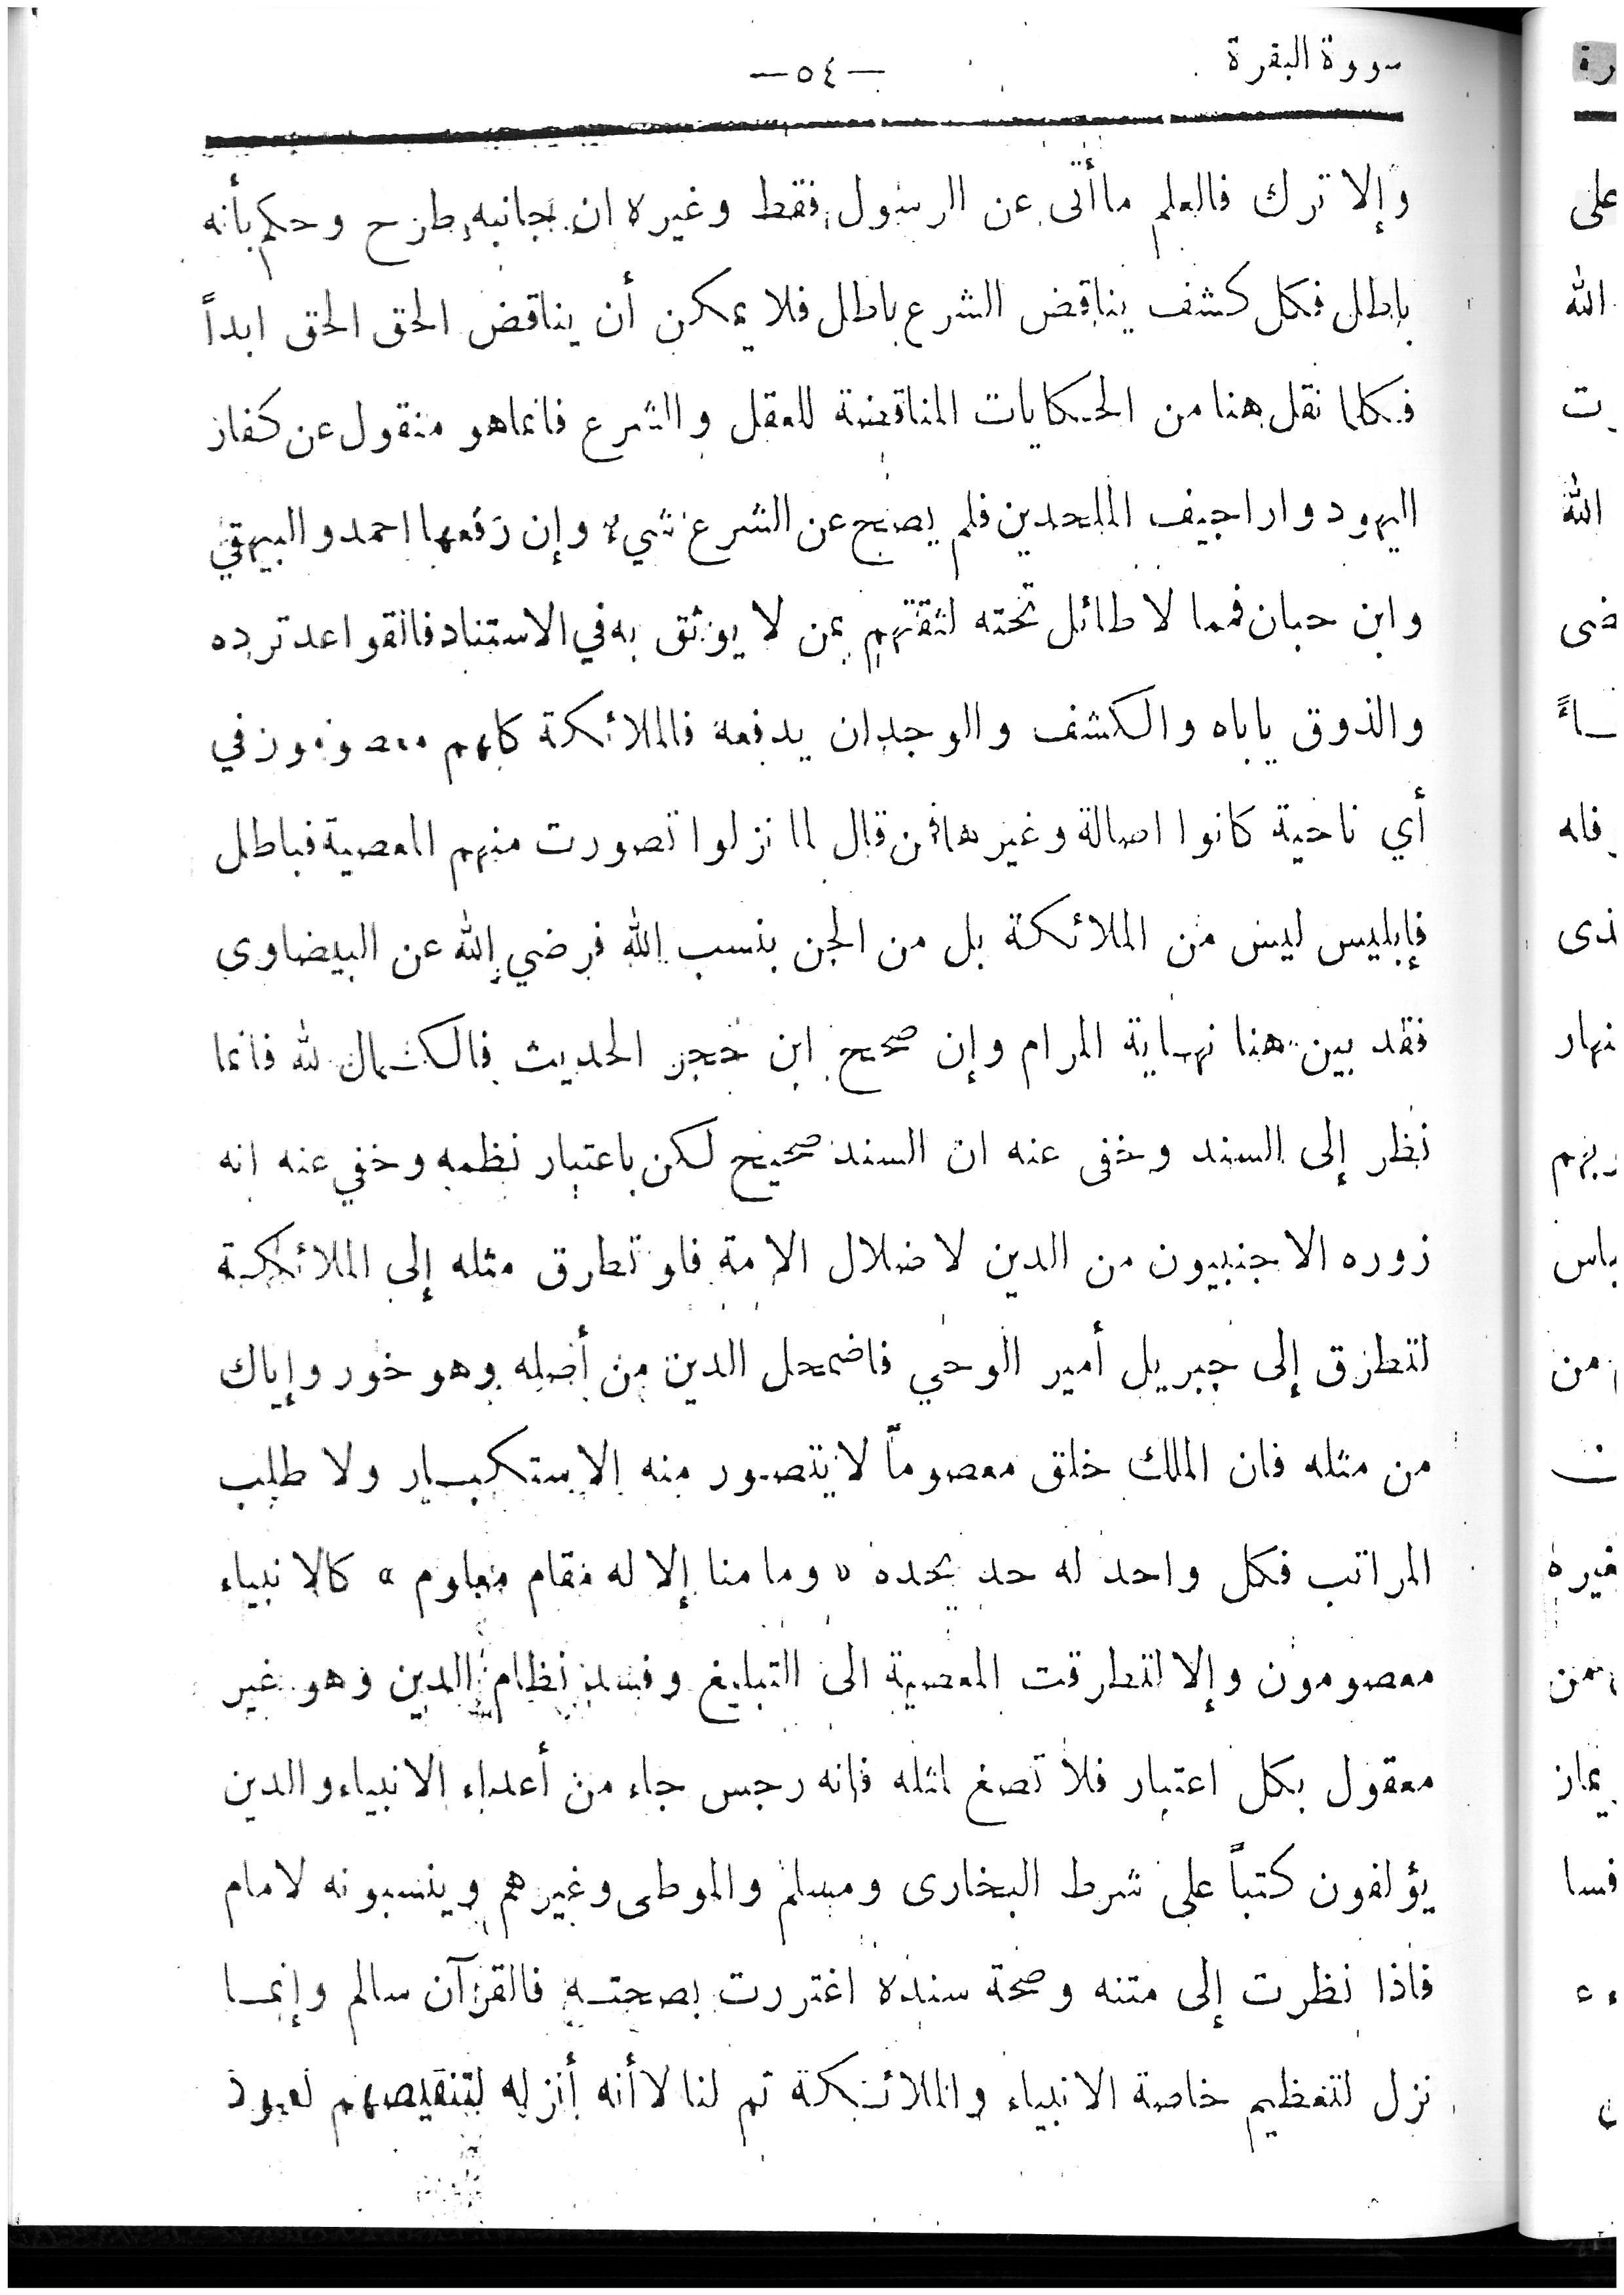 سورة البقرة
—٥٤—
وإلا ترك فالعلم ما أتى عن الرسول فقط وغيره ان جانبه طرح وحكم بأنه
باطل فكل كشف يناقض الشرع باطل فلا يمكن أن يناقض الحق الحق ابداً
فكلما نقل هنا من الحكايات المناقضة للعقل والشرع فانما هو منقول عن كفار
اليهود واراجيف الملحدين فلم يصح عن الشرع شيء وإن رفعها احمد والبيهقي
وابن حبان فمما لا طائل تحته لثقتهم بمن لا يوثق به في الاستناد فالقواعد ترده
والذوق ياباه والكشف والوجدان يدفعه فالملائكة كلهم معصومون في
أي ناحية كانوا اصالة وغيرها فمن قال لما نزلوا تصورت منهم المعصية فباطل
فإبليس ليس من الملائكة بل من الجن بنسب الله فرضي الله عن البيضاوى
فقد بين هنا نهاية المرام وإن صحح ابن حجر الحديث فالكمال لله فانما
نظر إلى السند وخفى عنه ان السند صحيح لكن باعتبار نظمه وخفي عنه انه
زوره الاجنبيون من الدين لاضلال الامة فلو تطرق مثله إلى الملائكة
لتطرق إلى جبريل أمير الوحي فاضمحل الدين من أصله وهو خور وإياك
من مثله فان الملك خلق معصوماً لا يتصور منه الاستكبار ولا طلب
المراتب فكل واحد له حد يحده « وما منا إلا له مقام معلوم » كالانبياء
معصومون وإلا لتطرقت المعصية الى التبليغ وفسد نظام الدين وهو غير
معقول بكل اعتبار فلا تصغ لمثله فانه رجس جاء من أعداء الانبياء والدين
يؤلفون كتباً على شرط البخارى ومسلم والموطى وغيرهم وينسبونه لامام
فاذا نظرت إلى متنه وصحة سنده اغتررت بصحته فالقرآن سالم وإنما
نزل لتعظيم خاصة الانبياء والملائكة تم لنا لا أنه أنزله لتنقيصهم نعوذ